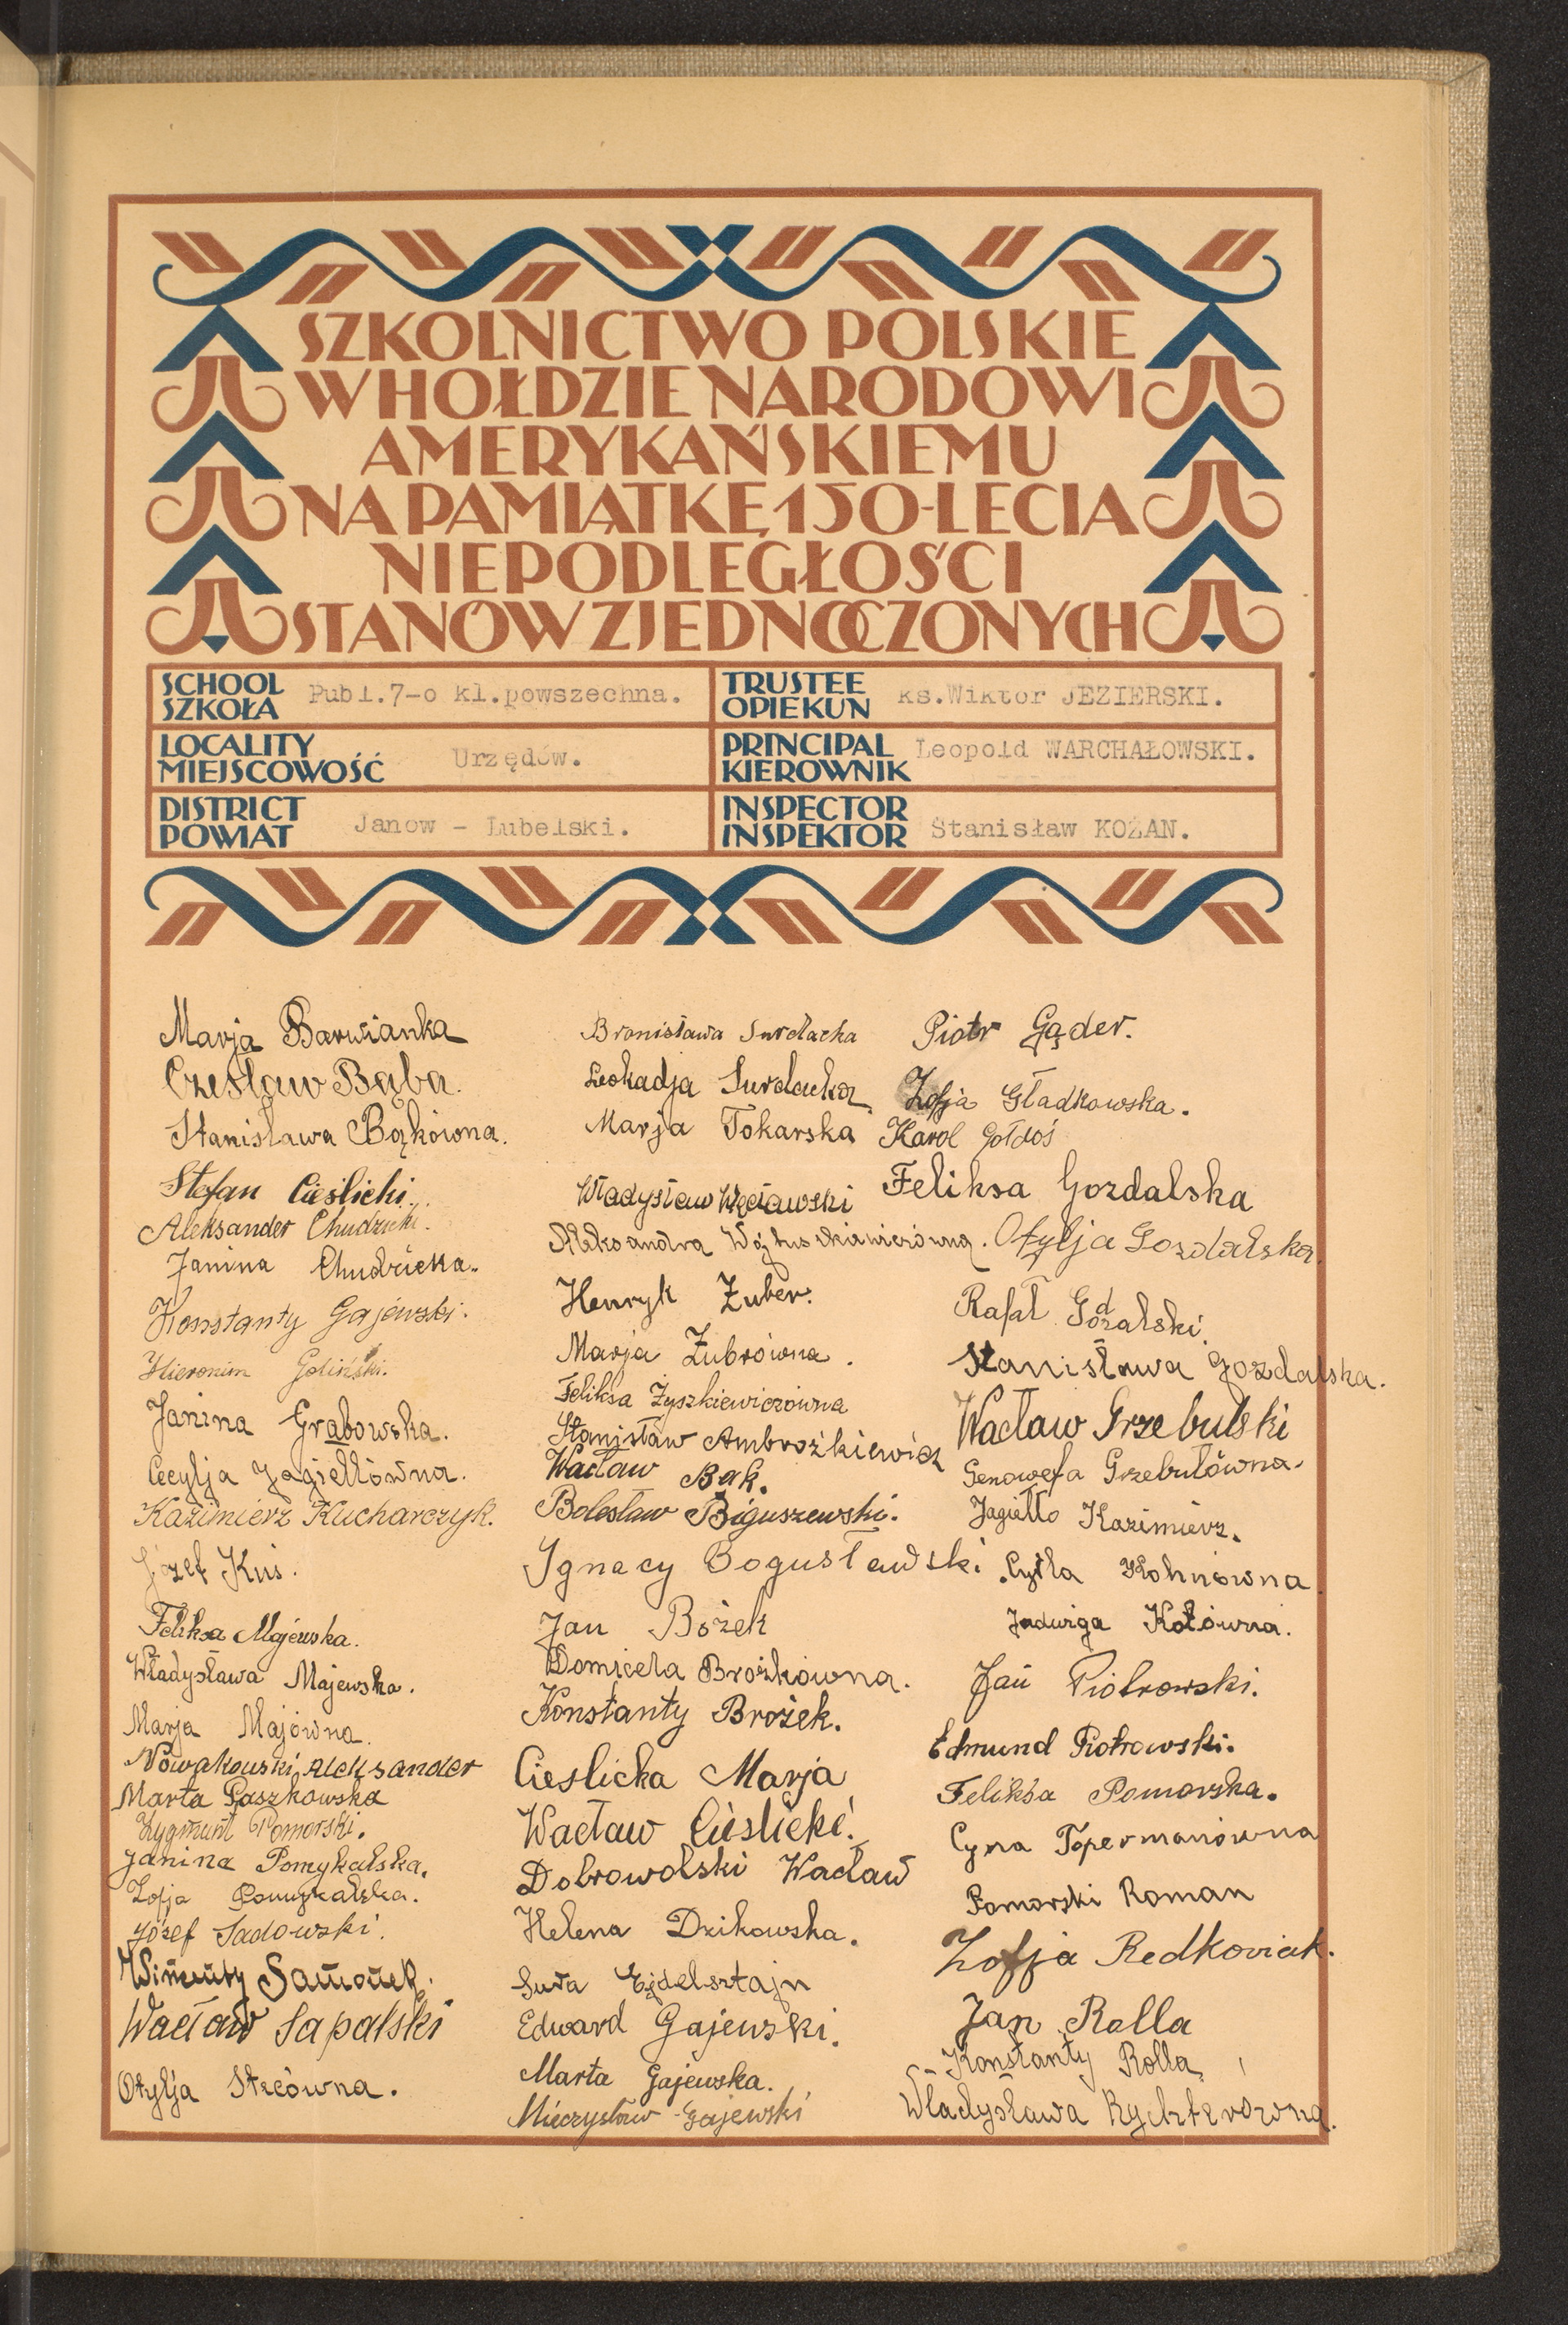 SZKOLNICTWO POLSKIE
W HOŁDZIE NARODOWI
AMERYKAŃSKIEMU
NA PAMIĄTKĘ 150-LECIA
NIEPODLEGŁOŚCI
STANÓW ZJEDNOCZONYCH
SCHOOL
SZKOŁA
Publ.7-o kl.powszechna.
TRUSTEE
OPIEKUN
Ks.Wiktor JEZIERSKI.
LOCALITY
MIEJSCOWOŚĆ
Urzędów.
PRINCIPAL
KIEROWNIK
Leopold WARCHAŁOWSKI.
DISTRICT
POWIAT
Janow - Lubelski.
INSPECTOR
INSPEKTOR
Stanisław KOZAN.
Marja Barwianka
Czesław Bąba.
Stanisława Bąkówna.
Stefan Cieślicki.
Aleksander Chudzicki.
Janina Chudzicka.
Konstanty Gajewski.
Hieronim Goliński.
Janina Grabowska.
Cecylja Jagiełłówna.
Kazimierz Kucharczyk.
Józef Kuś.
Feliksa Majewska.
Władysława Majewska.
Marja Majówna.
Nowakowski Aleksander
Marta Paszkowska
Zygmunt Pomorski.
Janina Pomykalska.
Zofja Pomykalska.
Józef Sadowski.
Wincenty Samonek.
Wacław Sapalski
Otylja Stecówna.
Bronisława Surdacka
Leokadja Surdacka
Marja Tokarska
Władysław Węcławski
Aleksandra
Henryk Zuber.
Marja Zubrówna.
Feliksa Żyszkiewiczówna
Stanisław Ambrożkiewicz
Wacław Bąk.
Bolesław Biguszewski.
Ignacy Bogusławski
Jan Bożek
Domicela Brożkówna.
Konstanty Brożek.
Cieslicka Marja
Wacław Cieślicki.
Dobrowolski Wacław
Helena Dzikowska.
Sura Ejdelsztajn
Edward Gajewski.
Marta Gajewska.
Mieczysław Gajewski
Piotr Gąder.
Zofja Gładkowska.
Karol Gołdoś
Feliksa Gozdalska
Otylja Gozdalska.
Rafał Gozdalski.
Stanisława Gozdalska.
Wacław Grzebulski
Genowefa Grzebulówna.
Jagiełło Kazimierz.
Cytla Kohnówna
Jadwiga Kotówna.
Jan Piotrowski.
Edmund Piotrowski.
Feliksa Pomorska.
Cyna Topermanówna
Pomorski Roman
Zofja Redkowiak.
Jan Rolla
Konstanty Rolla
Władysława Rychterówna.